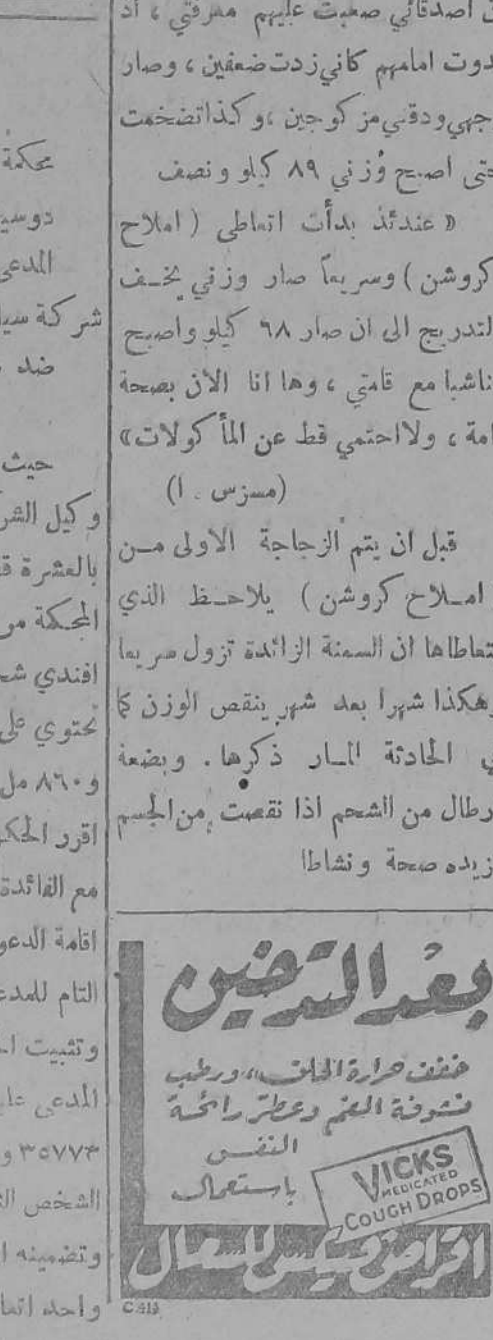 اصدقائي صعبت عليهم معرفتي ، اذ
دوت امامهم كاني زدت ضعفين ، وصار
جهي ودقني مز كوجين ، و كذا تضخمت
حتى اصبح وزني ٨٩ كيلو ونصف
« عندئذ بدأت اتعاطى ( املاح
كروشن ) وسريعاً صار وزني يخـف
لتدريج الى ان صار ٦٨ كيلو واصبح
ناشبا مع قامتي ، وها انا الآن بصحة
امة ، ولا احتمي قط عن المأ كولات »
( مسزس . ا )
قبل ان يتم الزجاجة الاولى مــن
امــلاح كروشن ) يلاحــظ الذي
تعاطاها ان السمنة الزائدة تزول سريعا
وهكذا شهرا بعد شهر ينقص الوزن كما
ي الحادثة المــار ذكرها . وبضعة
رطال من الشحم اذا نقصت من الجسم
زيده صحة ونشاطا
بعد التدخين
خفف حرارة الحلق ، ورطب
نشوفة الفم وعطر رائحة
النفس
باستعمال
VICKS
MEDICATED
COUGH DROPS
اقراص فيكس للسعال
C.413
محكمة
دوسي
المدعي
شركة سيا
ضد
حيث
وكيل الشر
بالعشرة ق
المحكمة مر
افندي شح
تحتوي على
و ٨٦٠ مل
اقرر الحك
مع الفائدة
اقامة الدعو
التام للمدع
وتثبيت ا
المدعى علي
٣٥٧٧٣ و
الشخص ال
وتضمينه ا
واحد اتعا